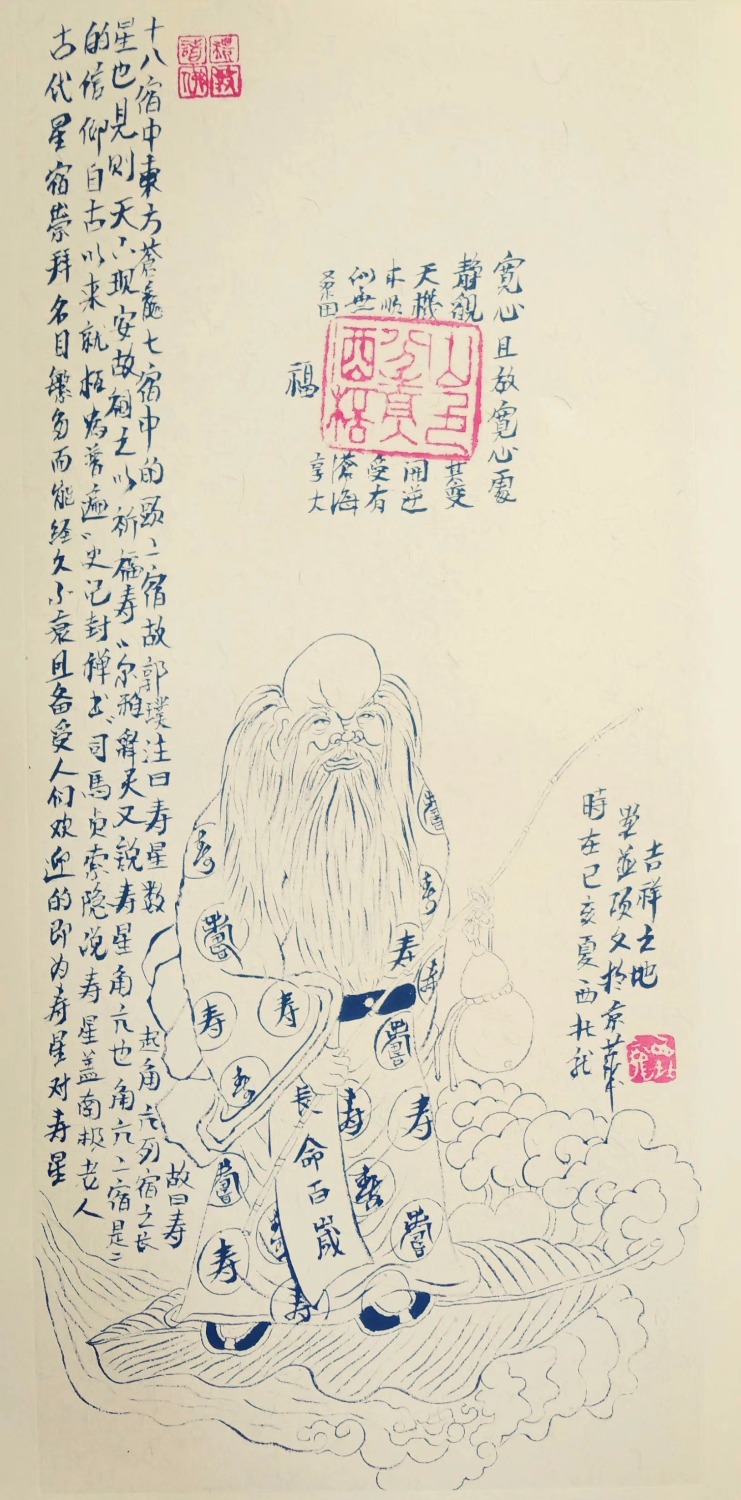 古代星宿崇拜名目繁多而能经久不衰且备受人们欢迎的即为寿星对寿星
的信仰自古以来就极为普遍〃史记封禅书〃司馬贞索隐说寿星盖南极老人
星也見則天下现安故祠之以祈福寿〃尔雅释天又説寿星角亢也角亢二宿是二
十八宿中東方蒼龍七宿中的頭二宿故郭璞注曰寿星数
起角亢列宿之长
故曰寿
禮敬
諸佛
寬心且放寬心處
静觀
其变
天機
開逆
本順
受有
似無
滄海
桑田
享大
福
吉祥之地
並頌文於京華
時在己亥夏西北龙
長命百歲
寿
寿
寿
寿
寿
寿
寿
寿